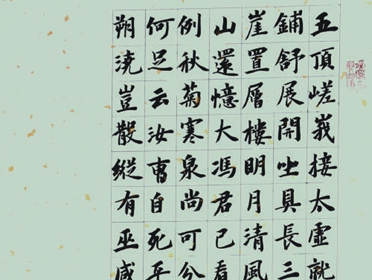 五頂嵯峩接太虛就
鋪舒展開㘴具長三
崖置層樓明月清風
山還憶大馮君已看
例秋菊寒泉尚可分
何足云汝曹自死平
朔澆豈散縱有巫咸